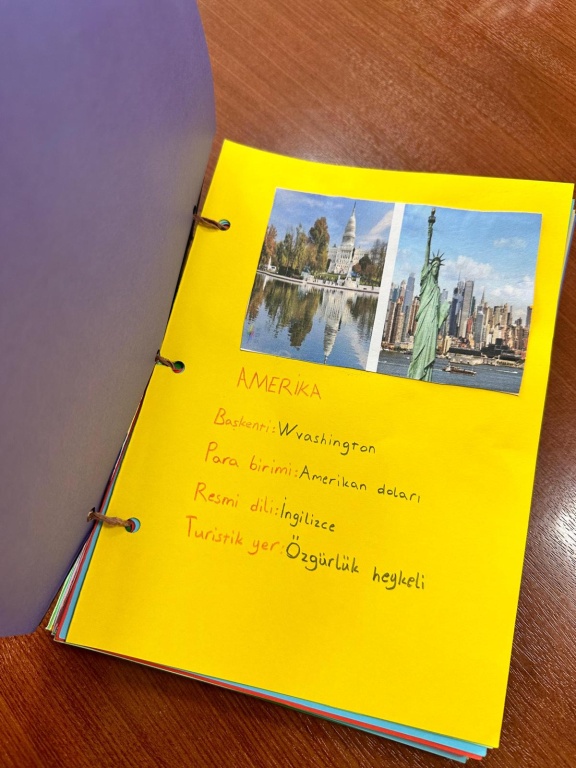 AMERİKA
Başkenti: Wvashington
Para birimi: Amerikan doları
Resmi dili: İngilizce
Turistik yer: Özgürlük heykeli